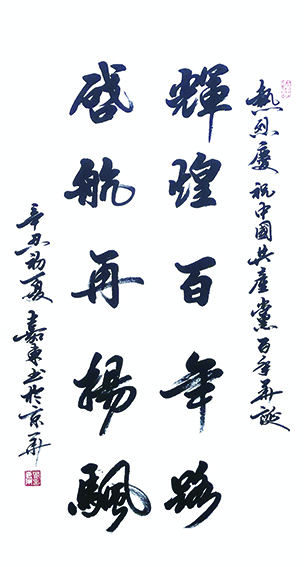 熱烈慶祝中國共產黨百年華誕
輝煌百年路
啓航再揚颿
辛丑初夏嘉東书於京華